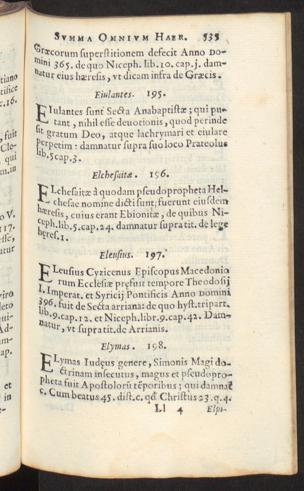 SVMMA OMNIVM HAER. 535
Græcorum superstitionem defecit Anno Do-
mini 365. de quo Niceph. lib. 10. cap. j. dam-
natur eius hæresis, vt dicam infra de Græcis.
Eiulantes. 195.
EIulantes sunt Secta Anabaptistæ; qui pu-
tant, nihil esse deuotionis, quod perinde
sit gratum Deo, atque lachrymari et eiulare
perpetim: damnatur supra suo loco Prateolus
lib. 5 cap. 3.
Elchesaitæ. 196.
ELchesaitæ à quodam pseudopropheta Hel-
chesae nomine dicti sunt; fuerunt eiusdem
hæresis, cuius erant Ebionitæ, de quibus Ni-
ceph. lib. 5. cap. 24. damnatur supra tit. de lege
heres. 1.
Eleusius. 197.
ELeusius Cyzicenus Episcopus Macedonio
rum Ecclesiæ præfuit tempore Theodosij
I. Imperat. et Syricij Pontificis Anno Domini
396. fuit de Secta arriana: de quo hyst. tripart.
lib. 9. cap. 12. et Niceph. libr. 9. cap. 42. Dam-
natur, vt supra tit. de Arrianis.
Elymas. 198.
ELymas Iudęus genere, Simonis Magi do-
ctrinam insecutus, magus et pseudopro-
pheta fuit Apostolorū tēporibus; qui damnat
c. Cum beatus 45. dist. c. qđ Christus 23. q. 4.
Ll 4 Elpi-
tiano
c. 16.
, fuit
Cle-
qui
o V.
17.
et
in